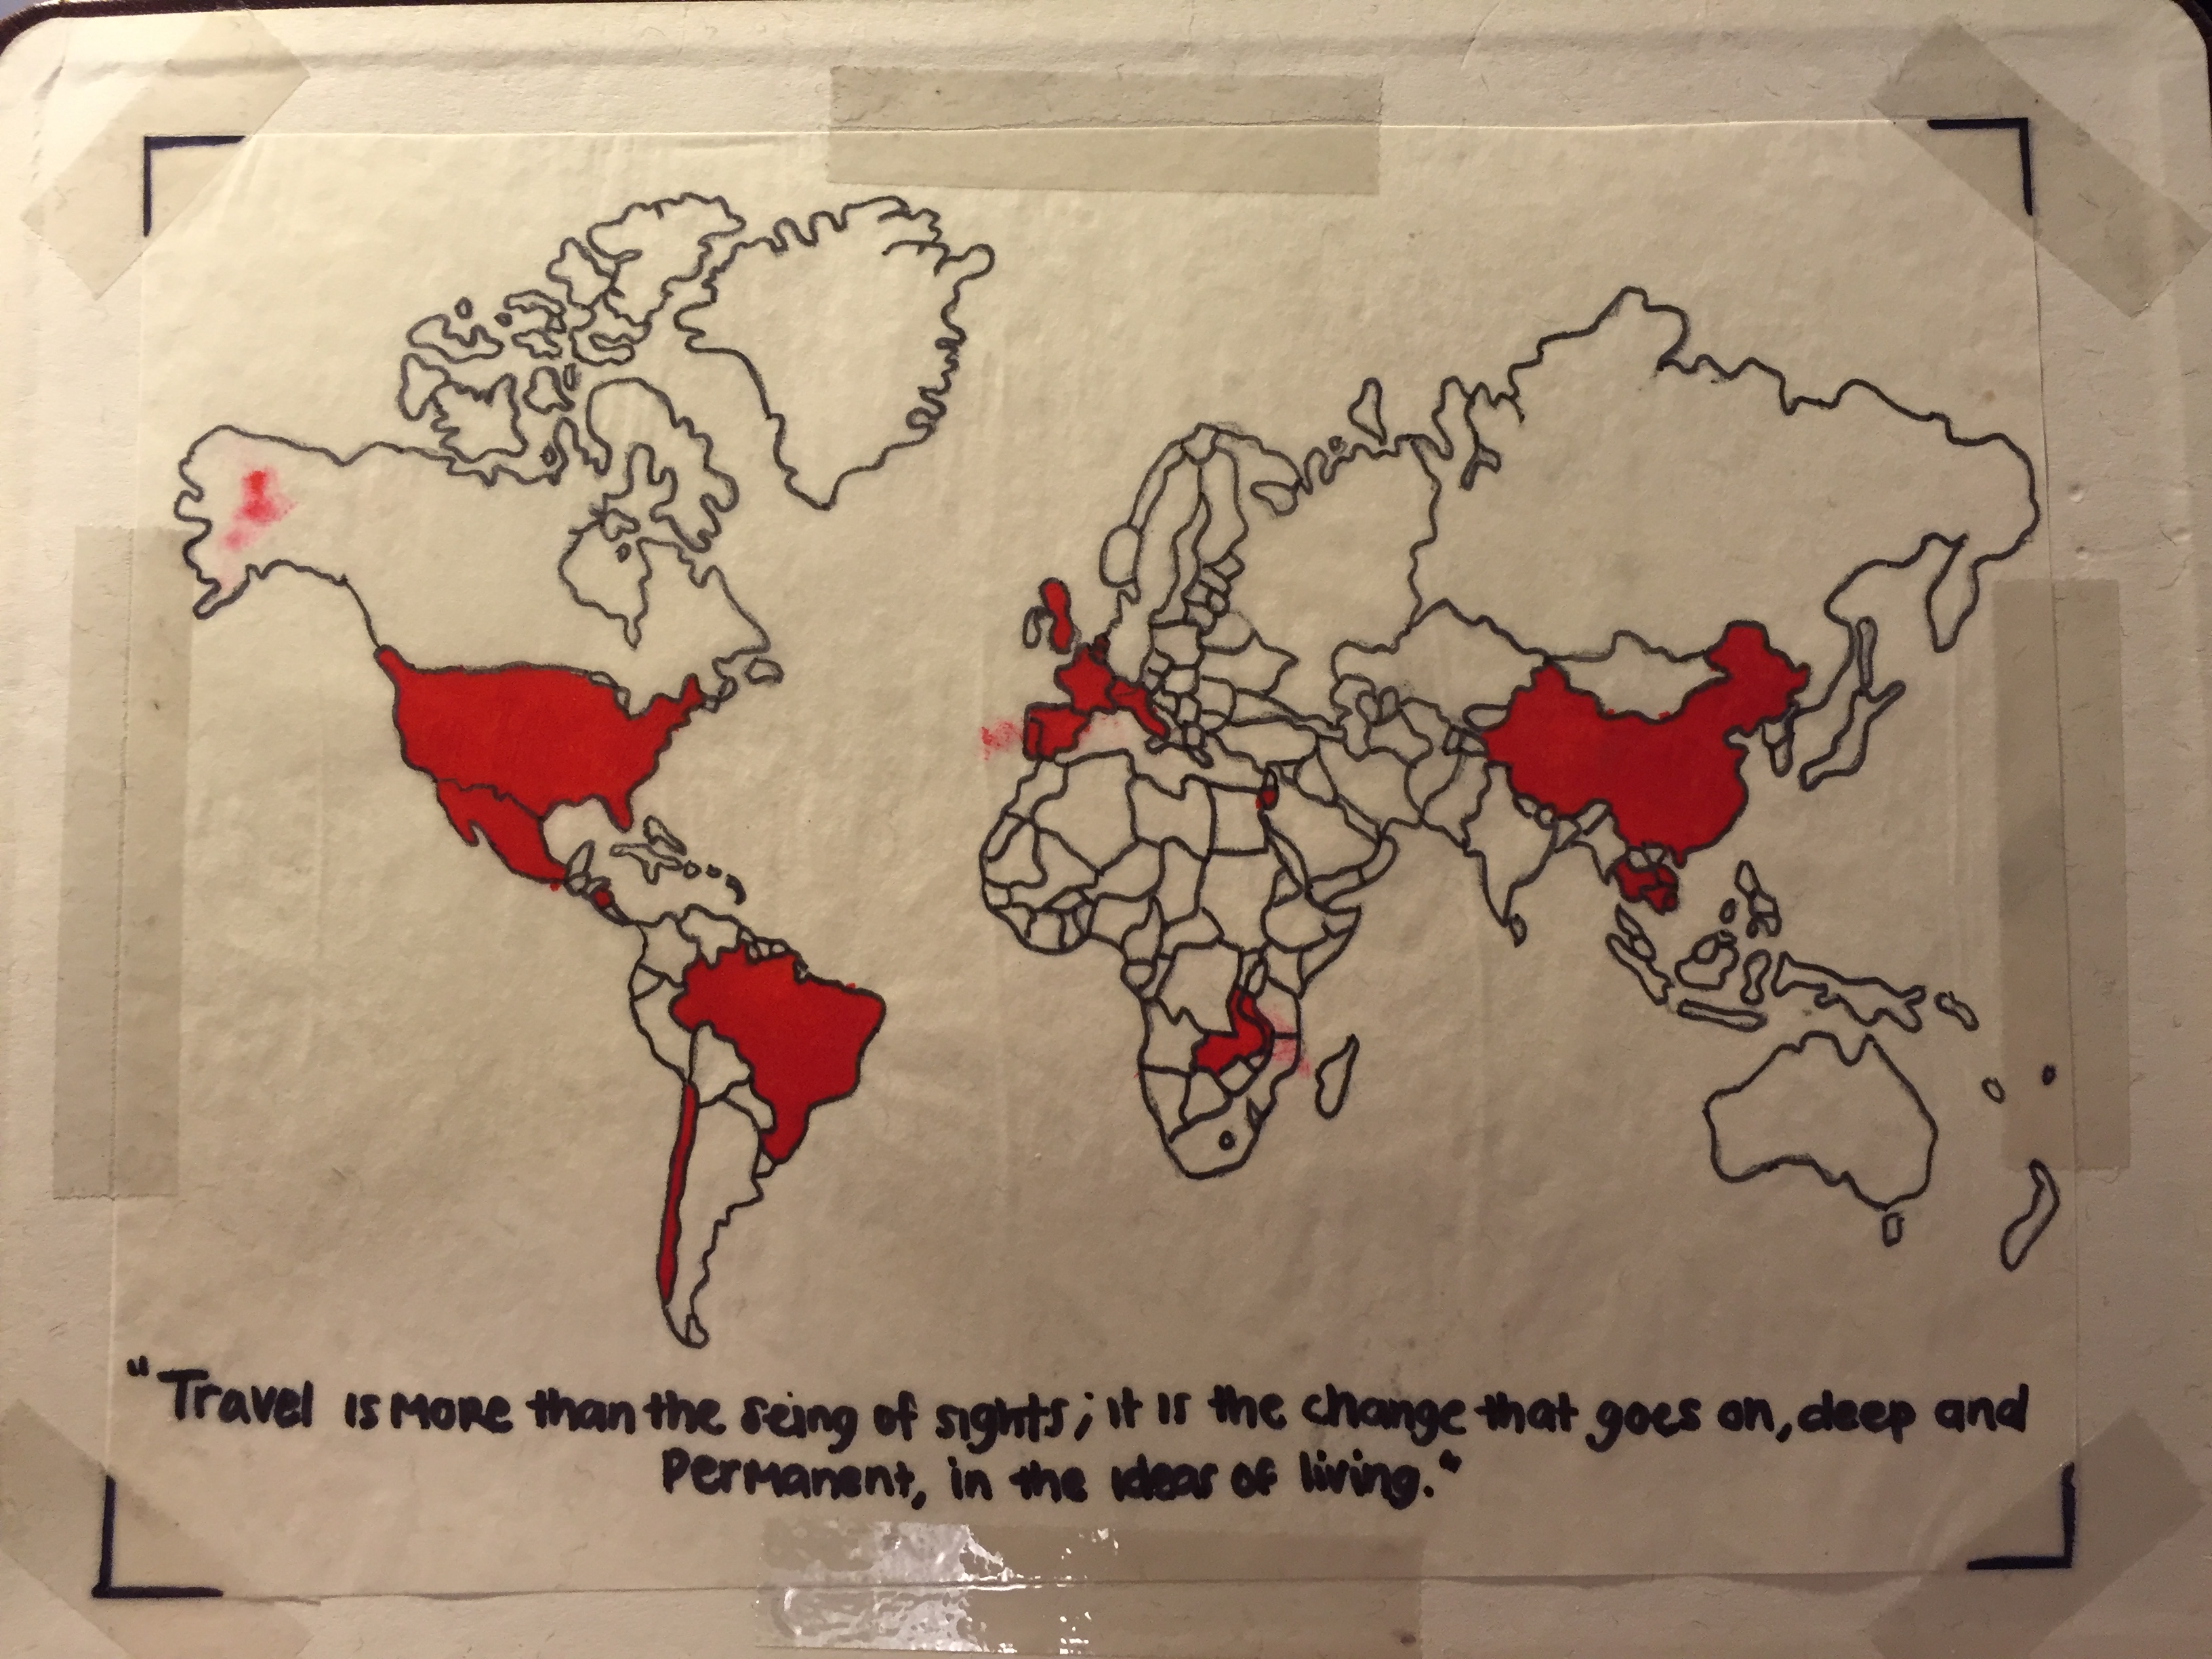 "Travel is more than the seing of sights; it is the change that goes on, deep and
permanent, in the ideas of living."